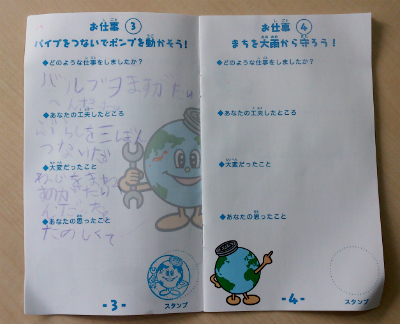 お仕事 ③
パイプをつないでポンプを動かそう！
◆どのような仕事をしましたか？
バルブヲまわしたり
◆あなたの工夫したところ
を三ぼん
つないだ
◆大変だったこと
◆あなたの思ったこと
たのしくて
-3-
スタンプ
お仕事 ④
まちを大雨から守ろう！
◆どのような仕事をしましたか？
◆あなたの工夫したところ
◆大変だったこと
◆あなたの思ったこと
-4-
スタンプ